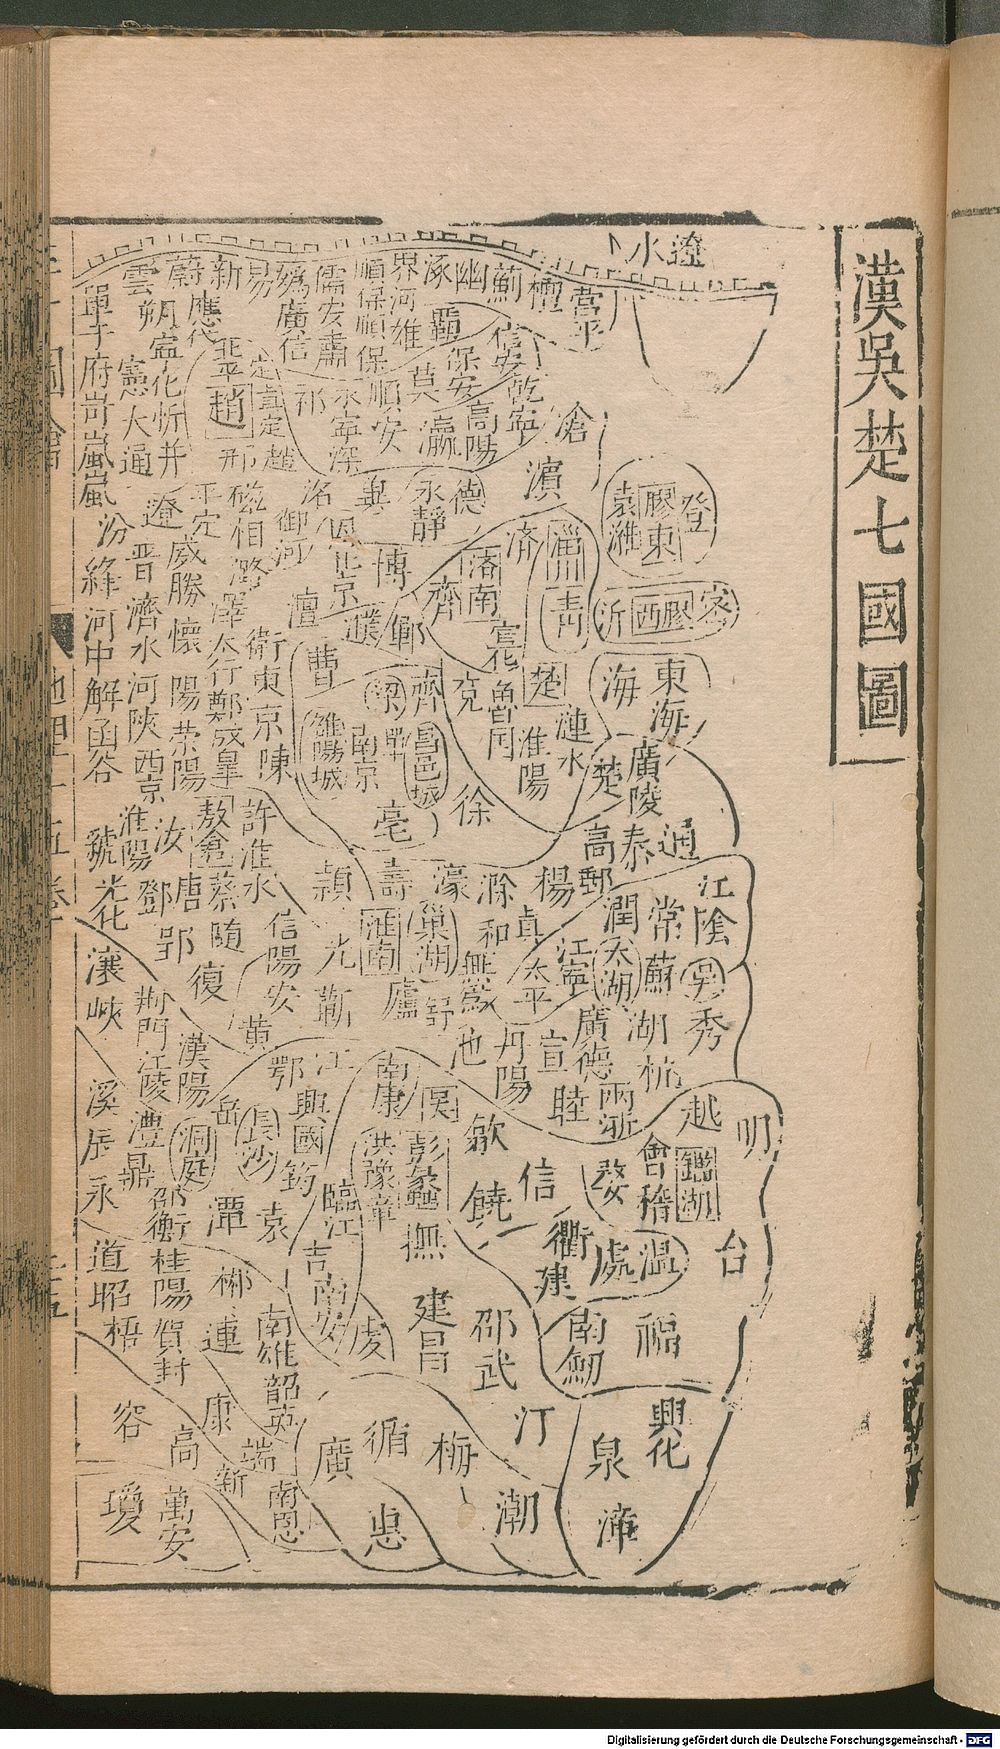 漢吳楚七國圖
遼水
當平
檀
薊
幽
涿
界河
雄
順保順保順安
儒安肅
媯
廣信
易
新
蔚
應
雲
朔
寧化
忻
并
單于府
岢嵐
憲
大通
趙
邢
定
真定
趙
祁
永寧
深
莫
瀛
霸
保安
信安
乾寧
高陽
滄
濱
德
永靜
冀
洺
御河
磁
相
平定
遼
汾
絳
河中
解
函谷
晉
濟水
河
陝
西京
威勝
懷
陽
榮陽
潞
澤
太行
鄭
成皋
衛
東京
陳
澶
北京
博
濮
鄆
齊
濟南
淄川
青
登
膠東
袁
濰
密
膠西
沂
曹
梁
單
齊
昌邑城
南京
雎陽城
兗
魯
楚
漣水
淮陽
海
東海
廣陵
楚
徐
亳
許
淮水
敖倉
蔡
汝
淮陽
虢
光化
鄧
唐
隨
郢
復
信陽
安
黃
潁
光
蘄
壽
淮南
濠
巢湖
廬
舒
滁
和
無為
池
楊
真
太平
高郵
泰
通
江陰
常
潤
太湖
江寧
蘇
吳
秀
湖
杭
廣德
宣
丹陽
睦
兩浙
越
明
會稽
鑑湖
台
婺
衢
處
溫
信
歙
饒
南康
彭蠡
洪
豫章
撫
建昌
建
邵武
南劒
福
興化
泉
漳
汀
潮
梅
循
惠
廣
虔
南安
吉
臨江
筠
袁
興國
江
鄂
岳
長沙
洞庭
漢陽
荊門
江陵
澧
鼎
潭
邵
衡
桂陽
郴
連
賀
封
康
南雄
韶
英
端
新
南恩
高
容
萬安
瓊
峽
溪
辰
永
道
昭
梧
Digitalisierung gefördert durch die Deutsche Forschungsgemeinschaft - DFG